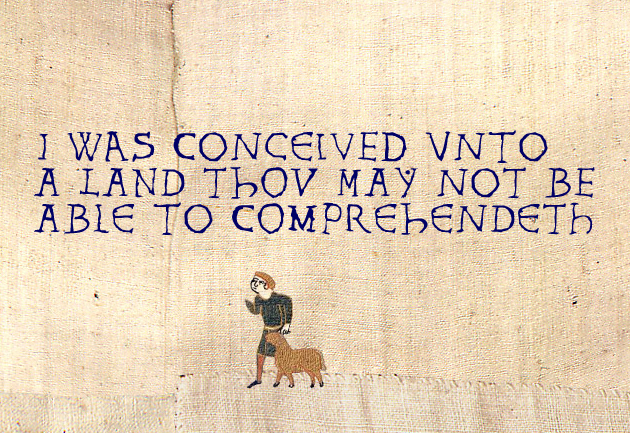 I WAS CONCEIVED VNTO
A LAND THOV MAY NOT BE
ABLE TO COMPREHENDETH